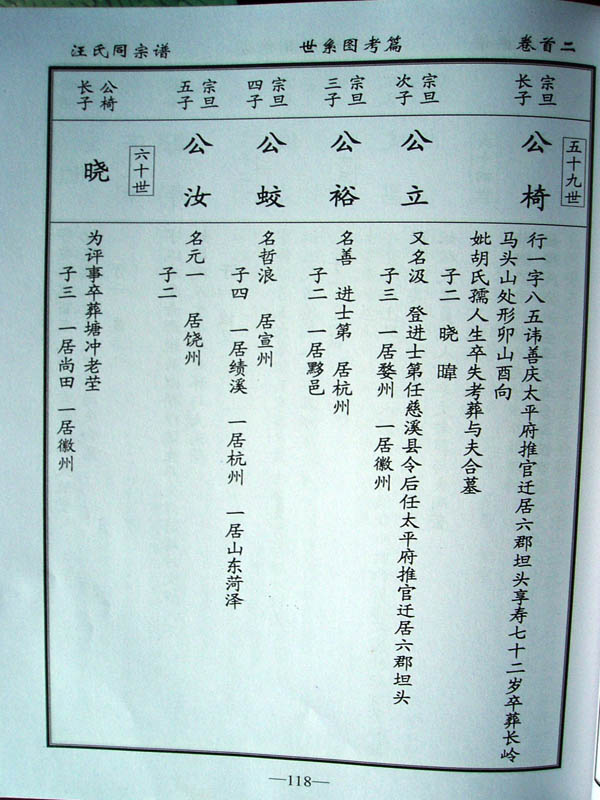 汪氏同宗谱
世系图考篇
卷首二
五十九世
宗旦长子
公椅
行一字八五讳善庆太平府推官迁居六郡坦头享寿七十二岁卒葬长岭
马头山处形卯山酉向
妣胡氏孺人生卒失考葬与夫合墓
子二 晓 暐
宗旦次子
公立
又名汲 登进士第任慈溪县令后任太平府推官迁居六郡坦头
子三 一居婺州 一居徽州
宗旦三子
公裕
名善 进士第 居杭州
子二 一居黟邑
宗旦四子
公蛟
名哲浪 居宣州
子四 一居绩溪 一居杭州 一居山东菏泽
宗旦五子
公汝
名元一 居饶州
子二
六十世
公椅长子
晓
为评事卒葬塘冲老茔
子三 一居尚田 一居徽州
—118—